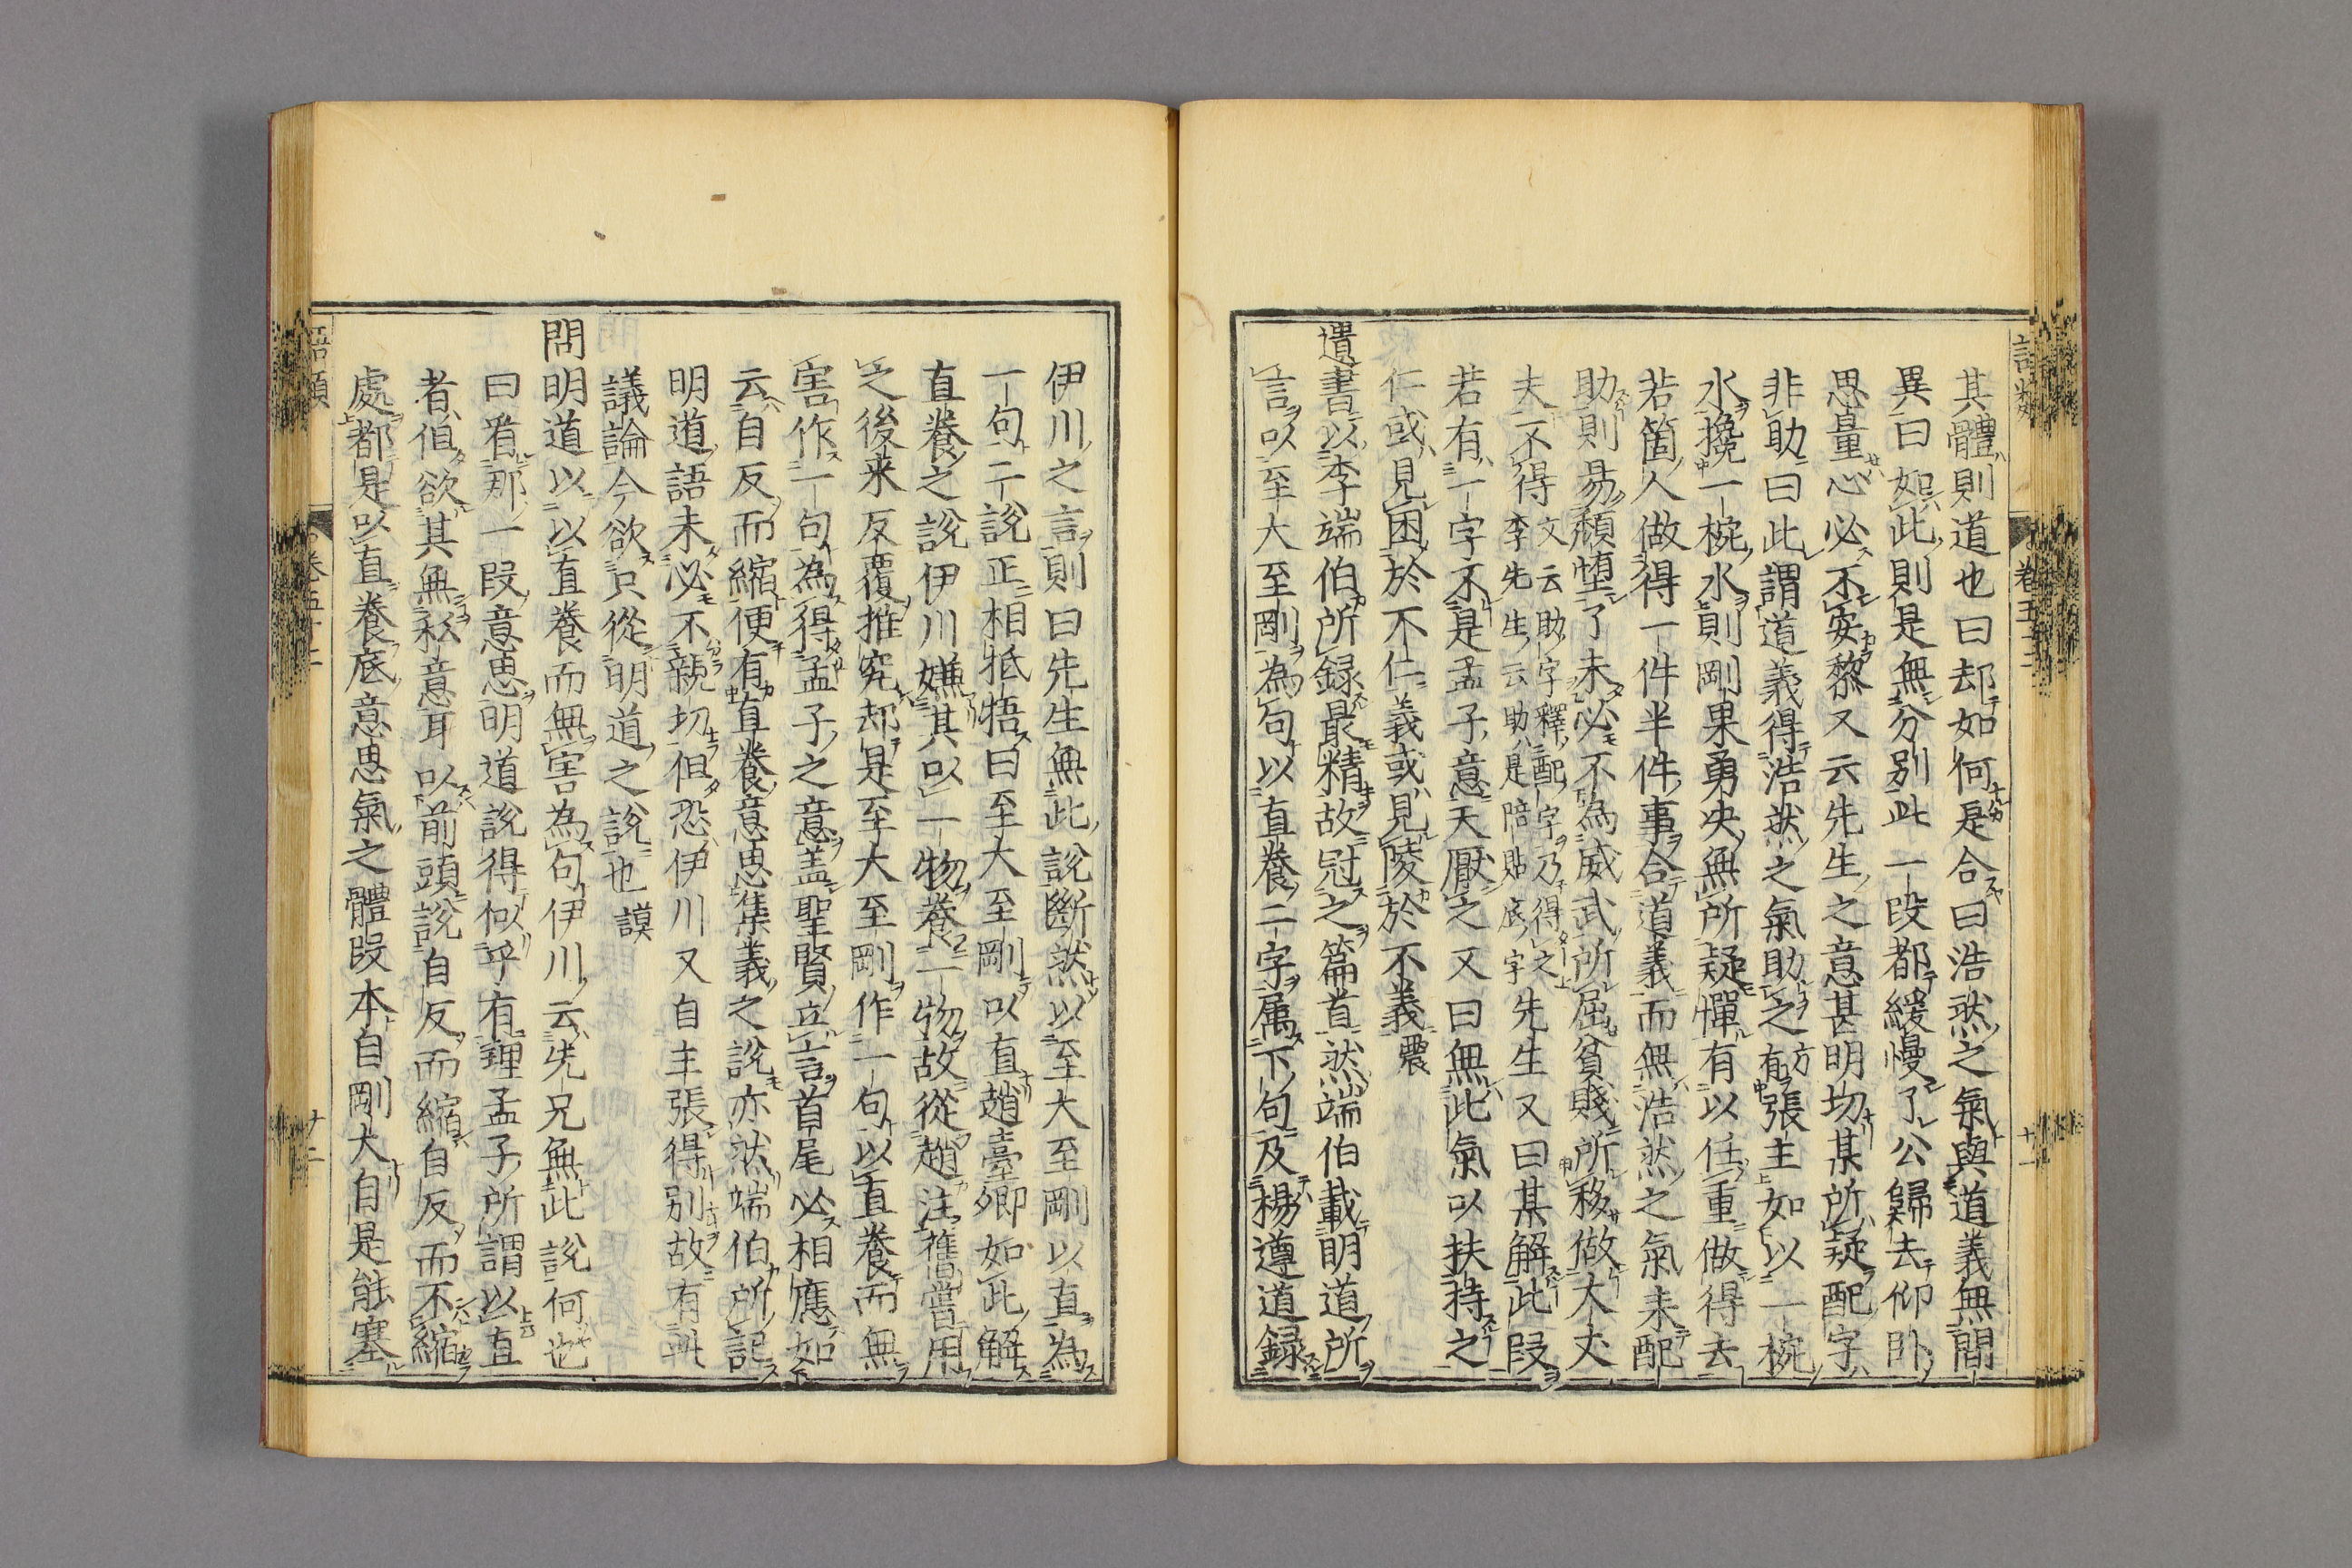 其體則道也曰却如何是合曰浩然之氣與道義無間
異曰如此則是無分別此一段都緩慢了公歸去仰卧
思量心必不安黎又云先生之意甚明切某所疑配字
非助曰此謂道義得浩然之氣助之方有張主如以一椀
水攙一椀水則剛果勇决無所疑憚有以任重做得去
若箇人做得一件半件事合道義而無浩然之氣来配
助則易頹墮了未必不為威武所屈貧賤所移做大丈
夫不得
文云助字釋配字乃得之
李先生云助是陪貼底字
先生又曰某解此段
若有一字不是孟子意天厭之又曰無此氣以扶持之
仁或見困於不仁義或見陵於不義震
遺書以李端伯所録最精故冠之篇首然端伯載明道所
言以至大至剛為句以直養二字属下句及楊遵道録
語類
卷五十二
十一
伊川之言則曰先生無此說斷然以至大至剛以直為
一句二說正相牴牾曰至大至剛以直趙臺卿如此解
直養之說伊川嫌其以一物養一物故從趙注舊嘗用
之後来反覆推究却是至大至剛作一句以直養而無
害作一句為得孟子之意盖聖賢立言首尾必相應如
云自反而縮便有直養意思集義之說亦然端伯所記
明道語未必不親切但恐伊川又自主張得別故有此
議論今欲只從明道之說也謨
問明道以以直養而無害為句伊川云先兄無此說何也
曰看那一段意思明道說得似乎有理孟子所謂以直
者但欲其無私意耳以前頭說自反而縮自反而不縮
處都是以直養底意思氣之體段本自剛大自是能塞
語類
卷五十二
十二